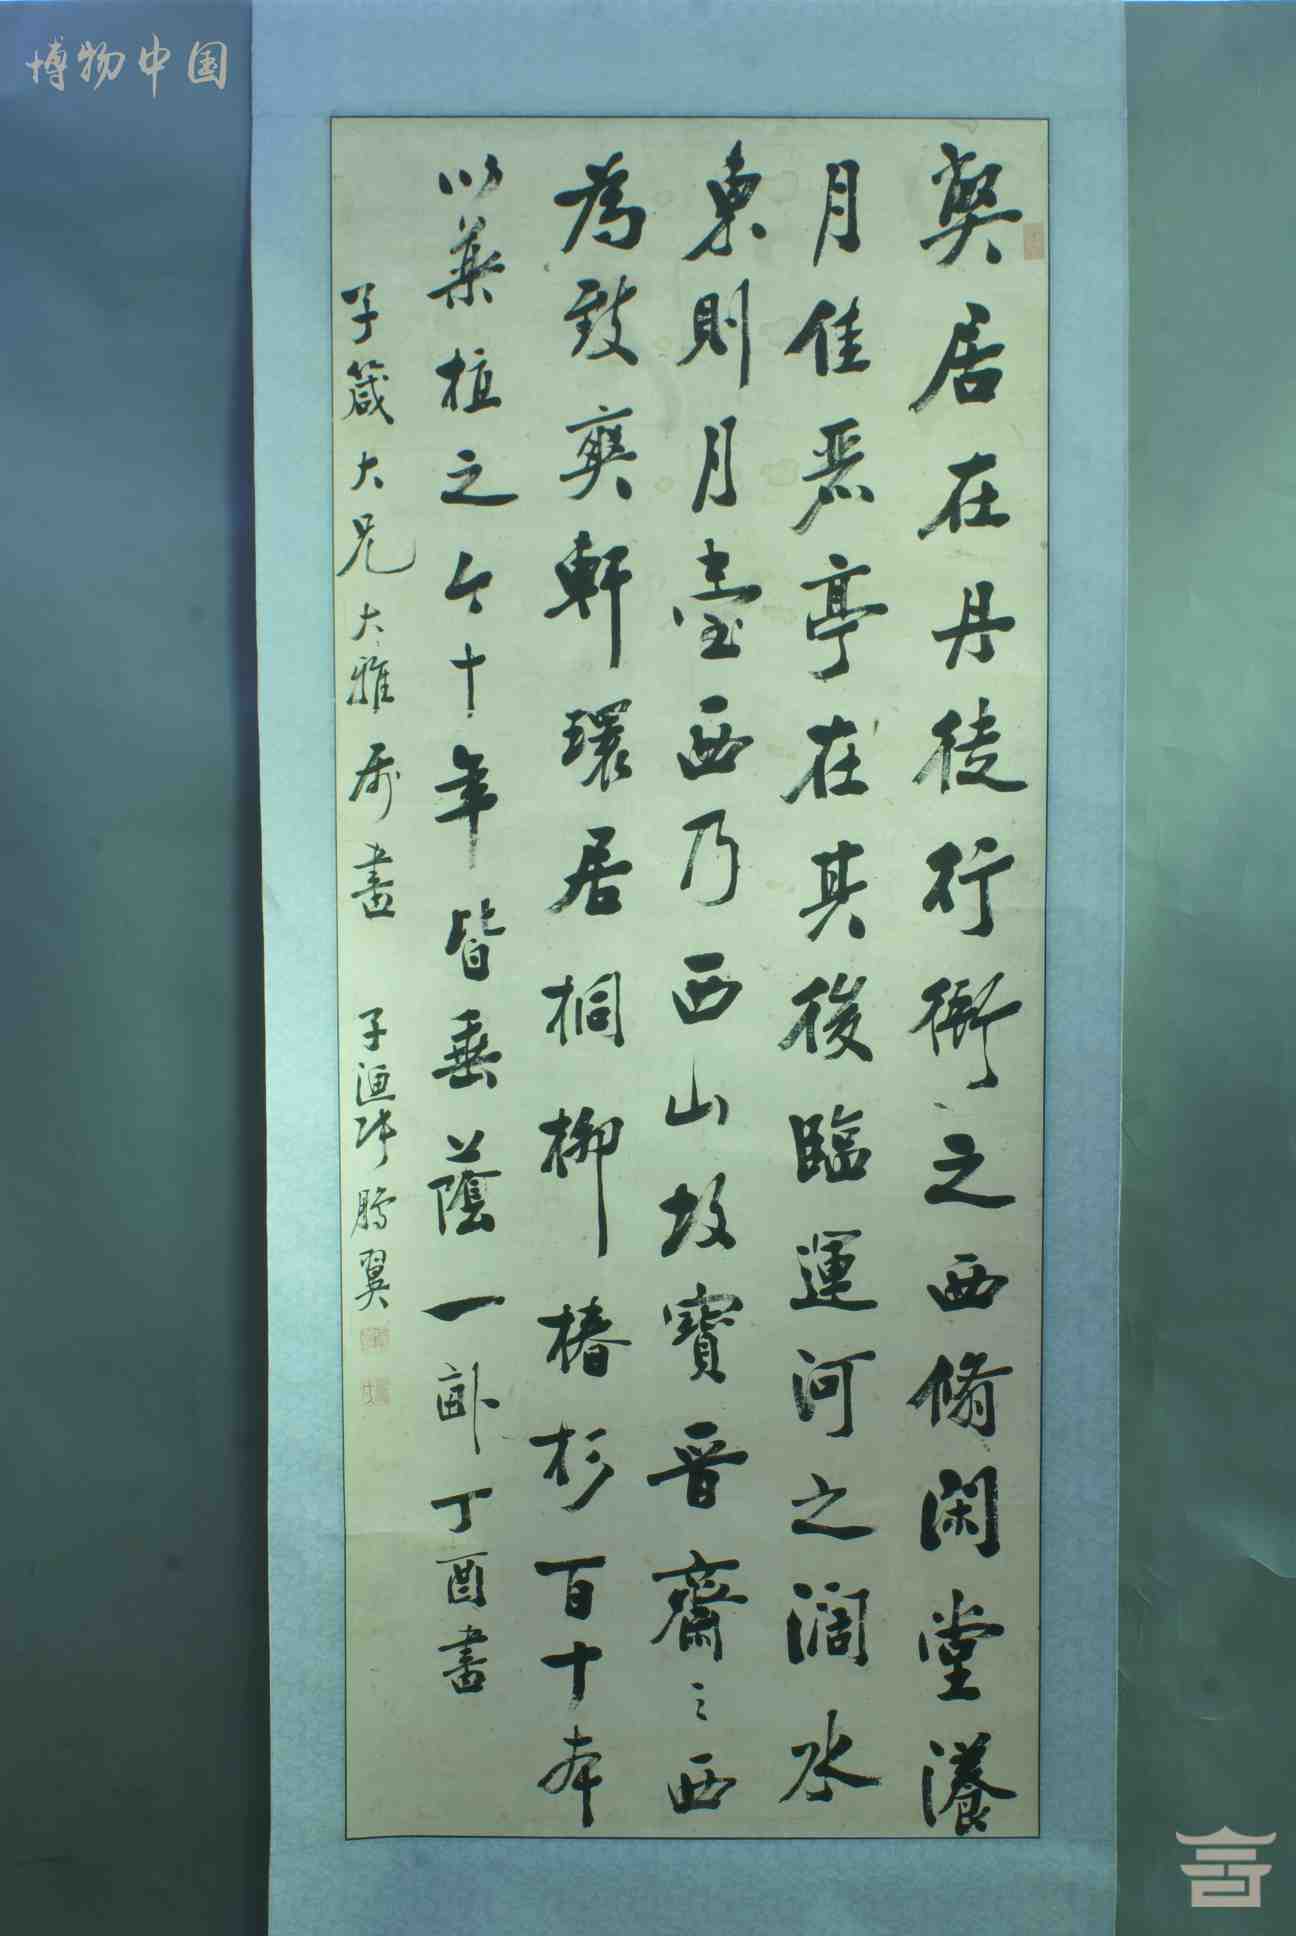 博物中国
弊居在丹徒行衙之西翛閑堂漾
月佳亭在其後臨運河之闊水
東則月臺西乃西山故寶晉齋之西
為致爽軒環居桐柳椿杉百十本
以植之今十年皆垂蔭一畝丁酉書
子箴大兄大雅屬書 子弟鵬翼